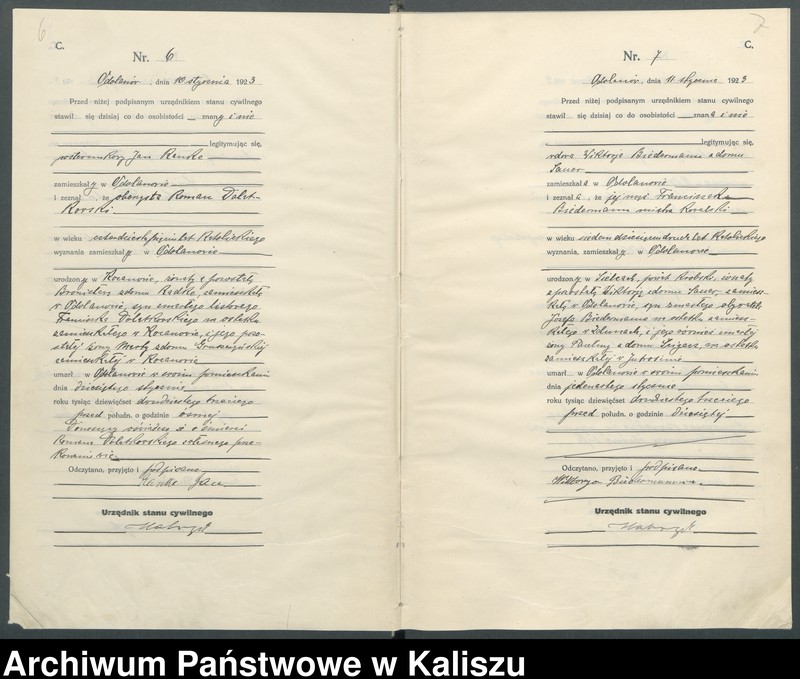 6
C.
Nr. 6
Odolanów, dnia 10 stycznia 1923
Przed niżej podpisanym urzędnikiem stanu cywilnego
stawił się dzisiaj co do osobistości znany i nie
legitymując się,
posterunkowy Jan
zamieszkały w Odolanowie
i zeznał, że oberżysta Roman
w wieku lat katolickiego
wyznania, zamieszkały w Odolanowie
urodzony w żonaty z pozostałą
Bronisławą z domu zamieszkałą
w Odolanowie, syn zmarłego
Franciszka na ostatku
zamieszkałego w i jego pozo-
stałej żony z domu
zamieszkałej w
umarł w Odolanowie w swoim pomieszkaniu
dnia dziesiątego stycznia
roku tysiąc dziewięćset dwudziestego trzeciego
przed połudn. o godzinie ósmej
o śmierci
Romana własnego prze-
konania się
Odczytano, przyjęto i podpisano
Jan
Urzędnik stanu cywilnego
7
C.
Nr. 7
Odolanów, dnia 11 stycznia 1923
Przed niżej podpisanym urzędnikiem stanu cywilnego
stawił się dzisiaj co do osobistości znana i nie
legitymując się,
wdowa Wiktorja Biedermann z domu
Sauer
zamieszkała w Odolanowie
i zeznała, że jej mąż Franciszek
Biedermann mistrz kowalski
w wieku siedemdziesięciu dwóch lat katolickiego
wyznania, zamieszkały w Odolanowie
urodzony w powiat żonaty
z pozostałą Wiktorją z domu Sauer, zamiesz-
kałą w Odolanowie, syn zmarłego
Józefa Biedermanna na ostatku zamiesz-
kałego w Zdunach, i jego również zmarłej
żony Pauliny z domu na ostatku
zamieszkałej w Jutrosinie
umarł w Odolanowie w swoim pomieszkaniu
dnia jedenastego stycznia
roku tysiąc dziewięćset dwudziestego trzeciego
przed połudn. o godzinie dziesiątej
Odczytano, przyjęto i podpisano
Wiktorya Biedermanowa
Urzędnik stanu cywilnego
Archiwum Państwowe w Kaliszu